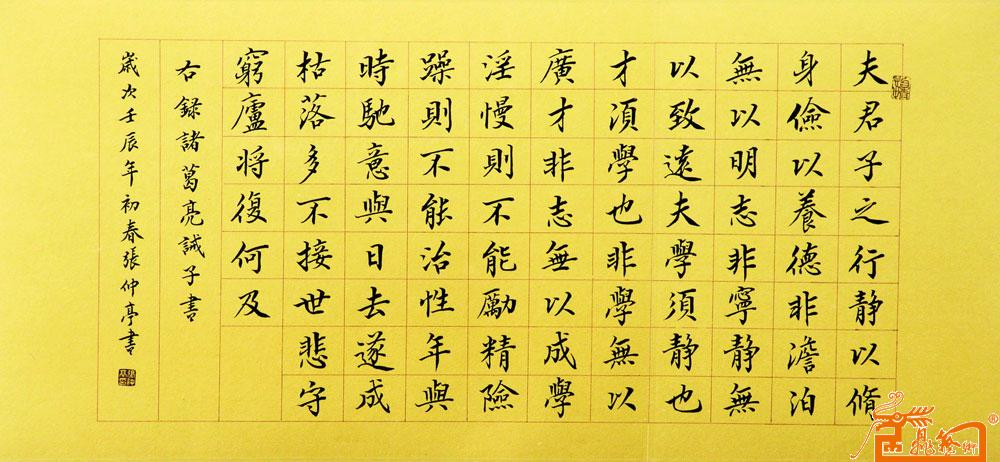 夫君子之行静以脩
身儉以養德非澹泊
無以明志非寧静無
以致遠夫學須静也
才須學也非學無以
廣才非志無以成學
淫慢則不能勵精險
躁則不能治性年與
時馳意與日去遂成
枯落多不接世悲守
窮廬将復何及
右録諸葛亮誡子書
嵗次壬辰年初春張仲亭書